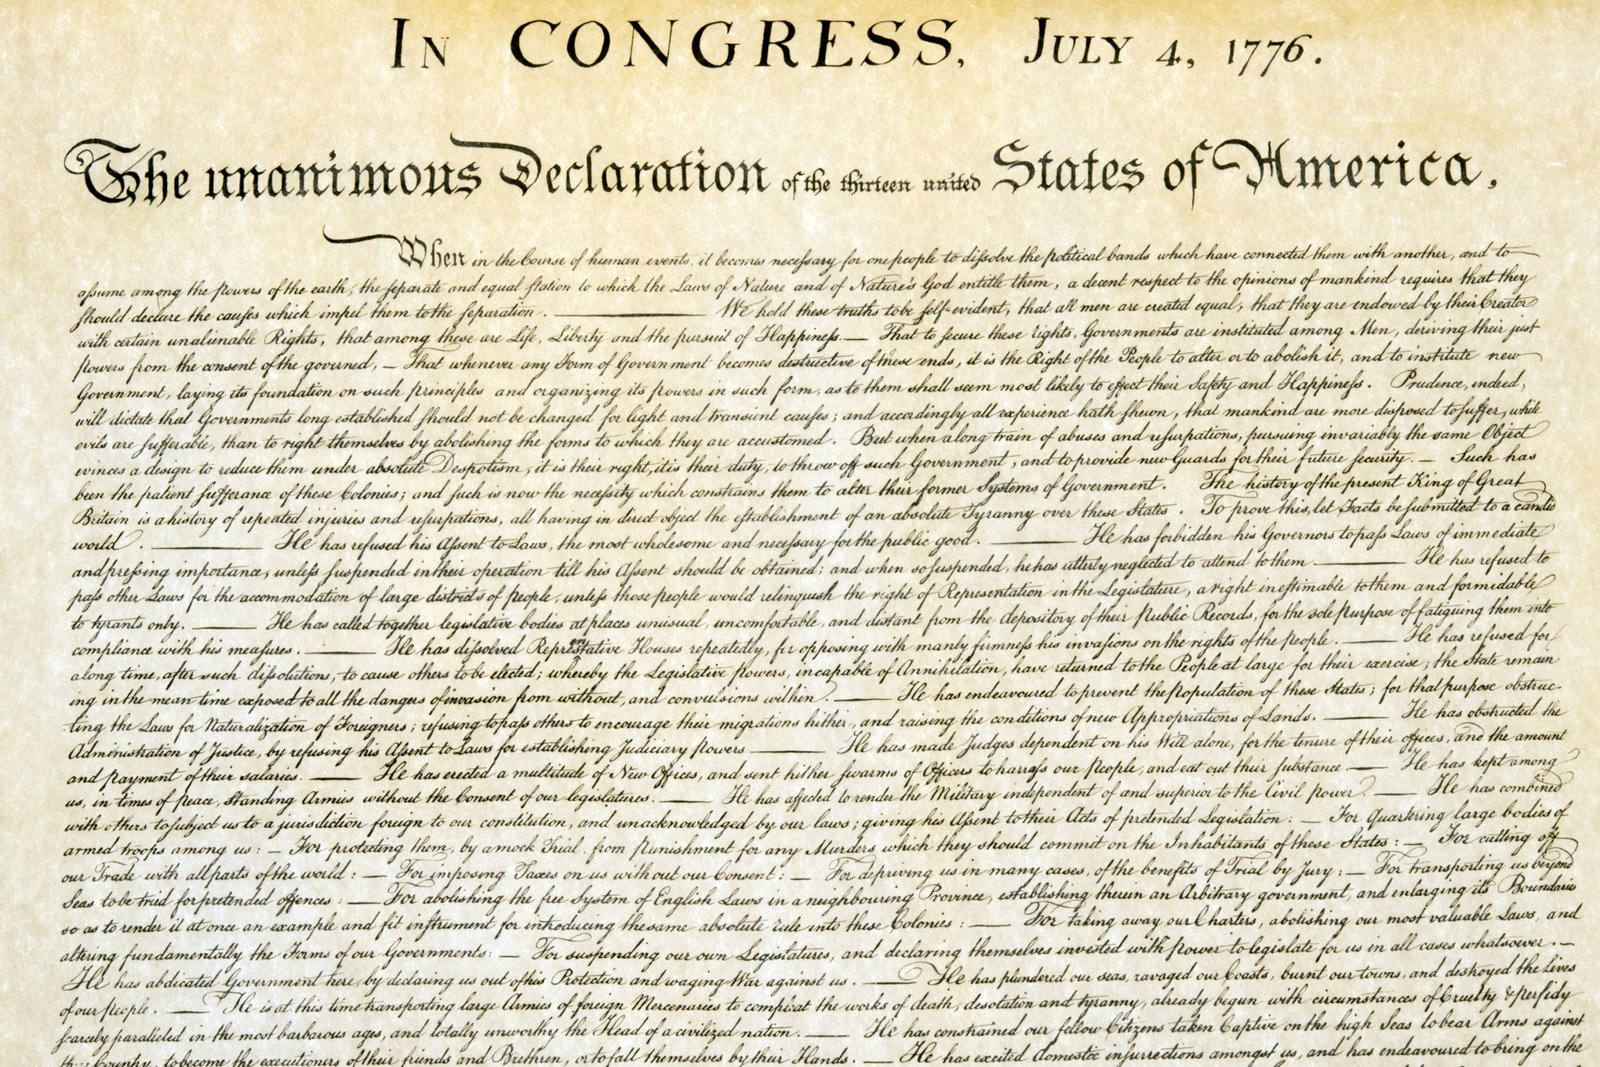 In CONGRESS, July 4, 1776.
The unanimous Declaration of the thirteen united States of America,
When in the Course of human events, it becomes necessary for one people to dissolve the political bands which have connected them with another, and to
assume among the powers of the earth, the separate and equal station to which the Laws of Nature and of Nature's God entitle them, a decent respect to the opinions of mankind requires that they
should declare the causes which impel them to the separation. ——— We hold these truths to be self-evident, that all men are created equal, that they are endowed by their Creator
with certain unalienable Rights, that among these are Life, Liberty and the pursuit of Happiness. — That to secure these rights, Governments are instituted among Men, deriving their just
powers from the consent of the governed, — That whenever any Form of Government becomes destructive of these ends, it is the Right of the People to alter or to abolish it, and to institute new
Government, laying its foundation on such principles and organizing its powers in such form, as to them shall seem most likely to effect their Safety and Happiness. Prudence, indeed,
will dictate that Governments long established should not be changed for light and transient causes; and accordingly all experience hath shewn, that mankind are more disposed to suffer, while
evils are sufferable, than to right themselves by abolishing the forms to which they are accustomed. But when a long train of abuses and usurpations, pursuing invariably the same Object
evinces a design to reduce them under absolute Despotism, it is their right, it is their duty, to throw off such Government, and to provide new Guards for their future security. — Such has
been the patient sufferance of these Colonies; and such is now the necessity which constrains them to alter their former Systems of Government. The history of the present King of Great
Britain is a history of repeated injuries and usurpations, all having in direct object the establishment of an absolute Tyranny over these States. To prove this, let Facts be submitted to a candid
world. ——— He has refused his Assent to Laws, the most wholesome and necessary for the public good. ——— He has forbidden his Governors to pass Laws of immediate
and pressing importance, unless suspended in their operation till his Assent should be obtained; and when so suspended, he has utterly neglected to attend to them. ——— He has refused to
pass other Laws for the accommodation of large districts of people, unless those people would relinquish the right of Representation in the Legislature, a right inestimable to them and formidable
to tyrants only. ——— He has called together legislative bodies at places unusual, uncomfortable, and distant from the depository of their Public Records, for the sole purpose of fatiguing them into
compliance with his measures. ——— He has dissolved Representative Houses repeatedly, for opposing with manly firmness his invasions on the rights of the people. ——— He has refused for
a long time, after such dissolutions, to cause others to be elected; whereby the Legislative powers, incapable of Annihilation, have returned to the People at large for their exercise; the State remain
ing in the mean time exposed to all the dangers of invasion from without, and convulsions within. ——— He has endeavoured to prevent the population of these States; for that purpose obstruc-
ting the Laws for Naturalization of Foreigners; refusing to pass others to encourage their migrations hither, and raising the conditions of new Appropriations of Lands. ——— He has obstructed the
Administration of Justice, by refusing his Assent to Laws for establishing Judiciary powers ——— He has made Judges dependent on his Will alone, for the tenure of their offices, and the amount
and payment of their salaries. ——— He has erected a multitude of New Offices, and sent hither swarms of Officers to harrass our People, and eat out their substance. — He has kept among
us, in times of peace, Standing Armies without the Consent of our legislatures. ——— He has affected to render the Military independent of and superior to the Civil power. ——— He has combined
with others to subject us to a jurisdiction foreign to our constitution, and unacknowledged by our laws; giving his Assent to their Acts of pretended Legislation: — For Quartering large bodies of
armed troops among us: — For protecting them, by a mock Trial, from punishment for any Murders which they should commit on the Inhabitants of these States: — For cutting off
our Trade with all parts of the world: — For imposing Taxes on us without our Consent: — For depriving us in many cases, of the benefits of Trial by Jury; — For transporting us beyond
Seas to be tried for pretended offences: — For abolishing the free System of English Laws in a neighbouring Province, establishing therein an Arbitrary government, and enlarging its Boundaries
so as to render it at once an example and fit instrument for introducing the same absolute rule into these Colonies: — For taking away our Charters, abolishing our most valuable Laws, and
altering fundamentally the Forms of our Governments: — For suspending our own Legislatures, and declaring themselves invested with power to legislate for us in all cases whatsoever. —
He has abdicated Government here, by declaring us out of his Protection and waging War against us. ——— He has plundered our seas, ravaged our Coasts, burnt our towns, and destroyed the lives
of our people. ——— He is at this time transporting large Armies of foreign Mercenaries to compleat the works of death, desolation and tyranny, already begun with circumstances of Cruelty & perfidy
scarcely paralleled in the most barbarous ages, and totally unworthy the Head of a civilized nation. ——— He has constrained our fellow Citizens taken Captive on the high Seas to bear Arms against
their Country, to become the executioners of their friends and Brethren, or to fall themselves by their Hands. ——— He has excited domestic insurrections amongst us, and has endeavoured to bring on the